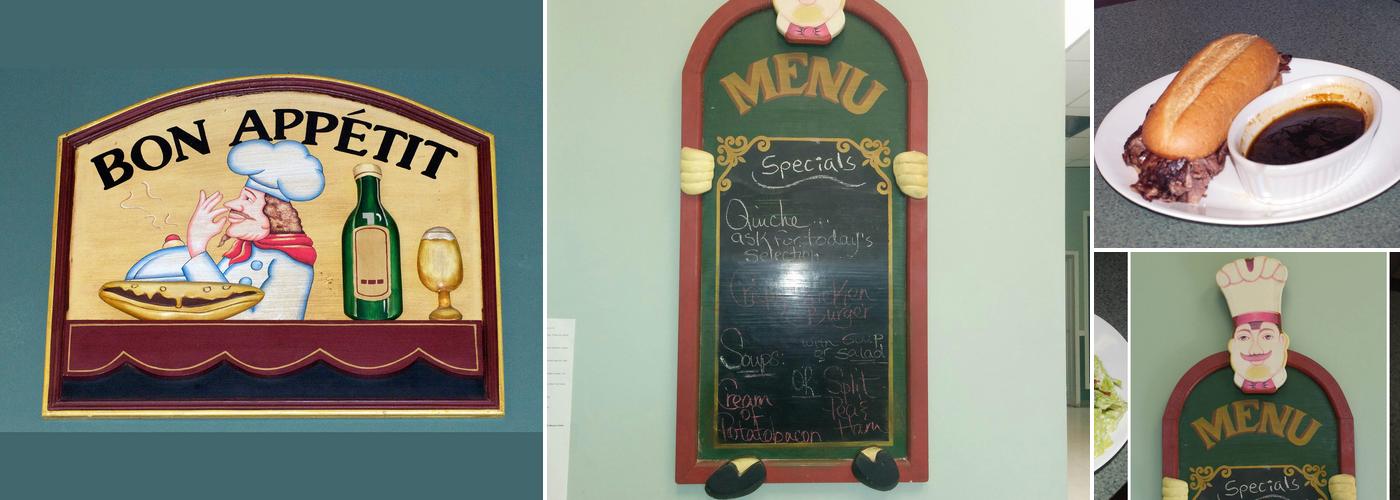 BON APPÉTIT
MENU
Specials
Quiche...
ask for today's
selection
Crispy Chicken
Burger
with soup
or salad
Soups:
Cream
of
Potatobacon
or
Split
Peas
Ham
MENU
Specials